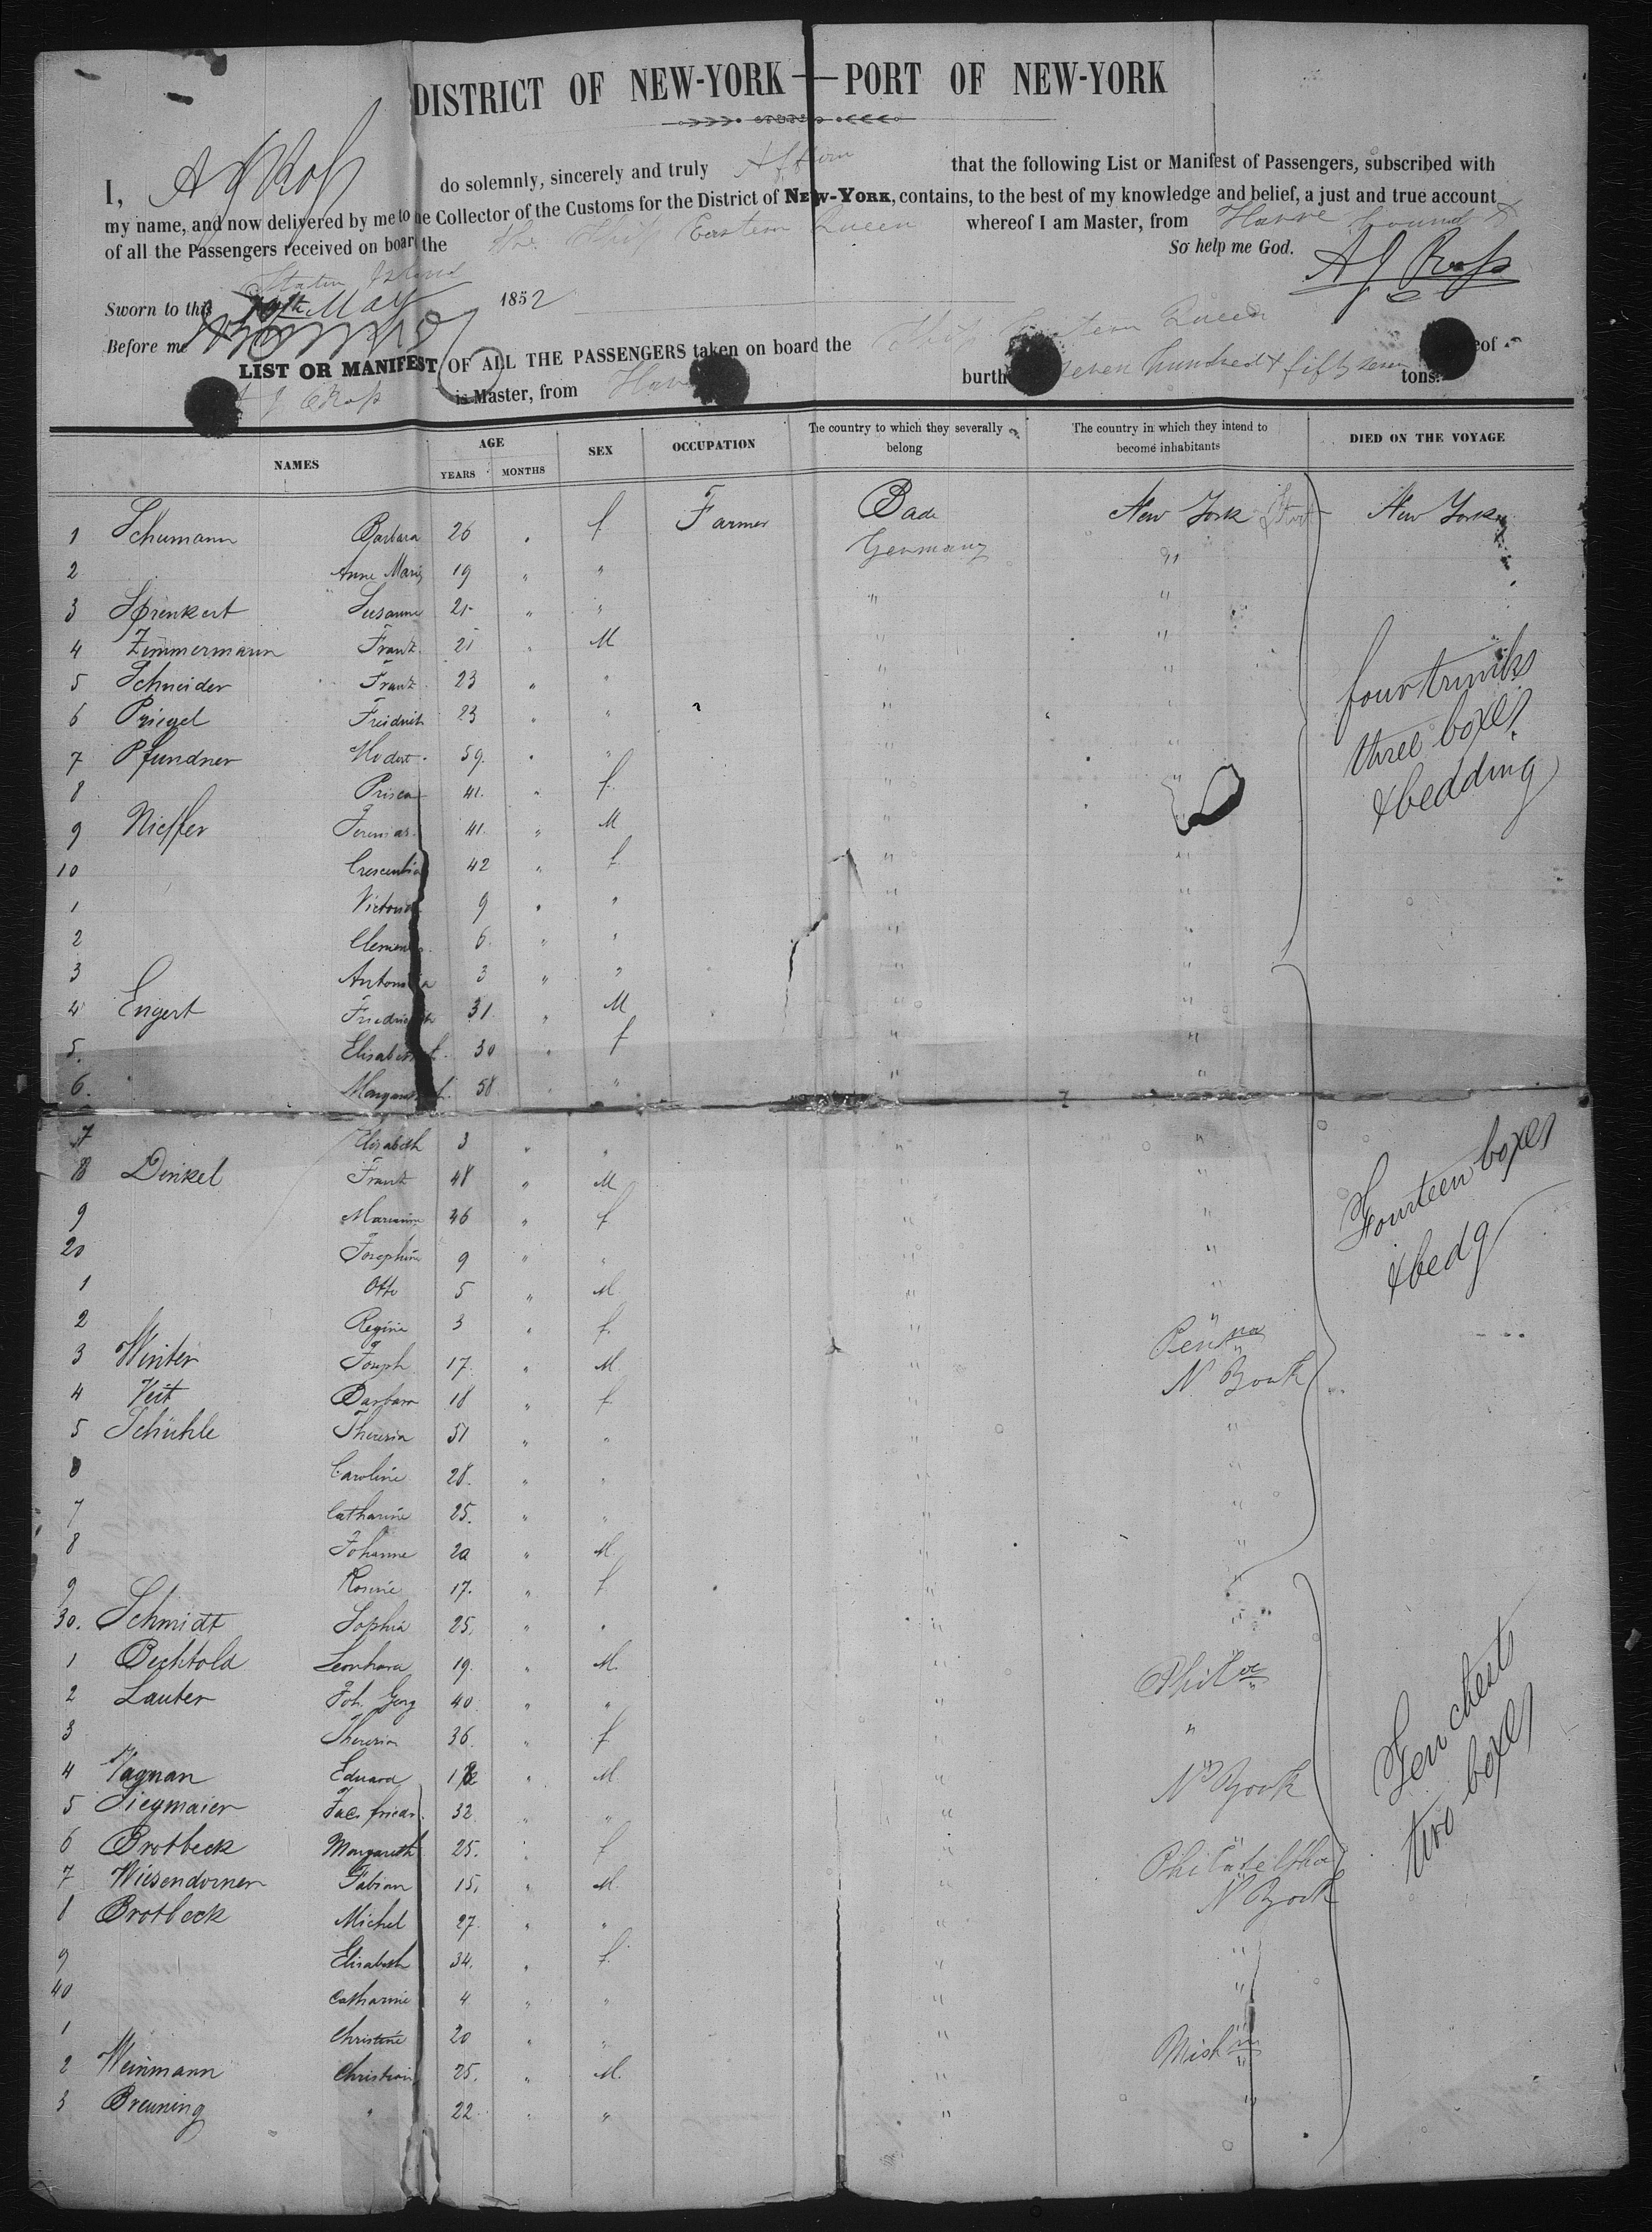 DISTRICT OF NEW-YORK — PORT OF NEW-YORK
I, A J Ross do solemnly, sincerely and truly Affirm that the following List or Manifest of Passengers, subscribed with
my name, and now delivered by me to he Collector of the Customs for the District of NEW-YORK, contains, to the best of my knowledge and belief, a just and true account
of all the Passengers received on board the the Ship Eastern Queen whereof I am Master, from Havre bound to
Staten Island So help me God.
Sworn to this 19th May 1852 A J Ross
Before me
LIST OR MANIFEST OF ALL THE PASSENGERS taken on board the Ship Eastern Queen eof
A J Ross is Master, from Hav burth seven hundred & fifty seven tons.
NAMES AGE YEARS MONTHS SEX OCCUPATION The country to which they severally belong The country in which they intend to become inhabitants DIED ON THE VOYAGE
1 Schumann Barbara 26 " f Farmer Bade New York New York
2 Anne Marie 19 " " Germany "
3 Sprenkert Susanne 21 " " " "
4 Zimmermann Frantz 21 " M " "
5 Schneider Frantz 23 " " " "
6 Priegel Freidrich 23 " " " "
7 Pfundner Modest 59 " " " "
8 Prisca 41 " f " "
9 Nieffer Jeremias 41 " M " "
10 Crescentia 42 " f " "
1 Victoria 9 " " " "
2 Clement 6 " " " "
3 Antonia 3 " " " "
4 Engert Friedrich 31 " M " "
5 Elisabeth 30 " f " "
6 Margareth 58 " " " "
7 Elisabeth 3 " " " "
8 Dinkel Frantz 48 " M " "
9 Marianne 46 " f " "
20 Josephine 9 " " " "
1 Otto 5 " M " "
2 Regine 3 " f " "
3 Winter Joseph 17 " M " Penna
4 Veit Barbara 18 " f " N York
5 Schühle Theresia 51 " " " "
6 Caroline 28 " " " "
7 Catharine 25 " " " "
8 Johanne 20 " M " "
9 Rosine 17 " f " "
30 Schmidt Sophia 25 " " " "
1 Bechtold Leonhard 19 " M " Phila
2 Lauter Joh. Georg 40 " " "
3 Theresia 36 " f " "
4 Vagnan Eduard " M " N York
5 Siegmaier Jac. friedr. 32 " " "
6 Brotbeck Margareth 25 " f " Philadelphia
7 Wiesendorner Fabian 15 " M " N York
8 Brotbeck Michel 27 " " "
9 Elisabeth 34 " f " "
40 Catharine 4 " " " "
1 Christine 20 " " " "
2 Weinmann Christian 25 " M " Mishn
3 Breuning " 22 " " " "
four trunks
three boxes
& bedding
Fourteen boxes
& bedg
Ten chests
two boxes